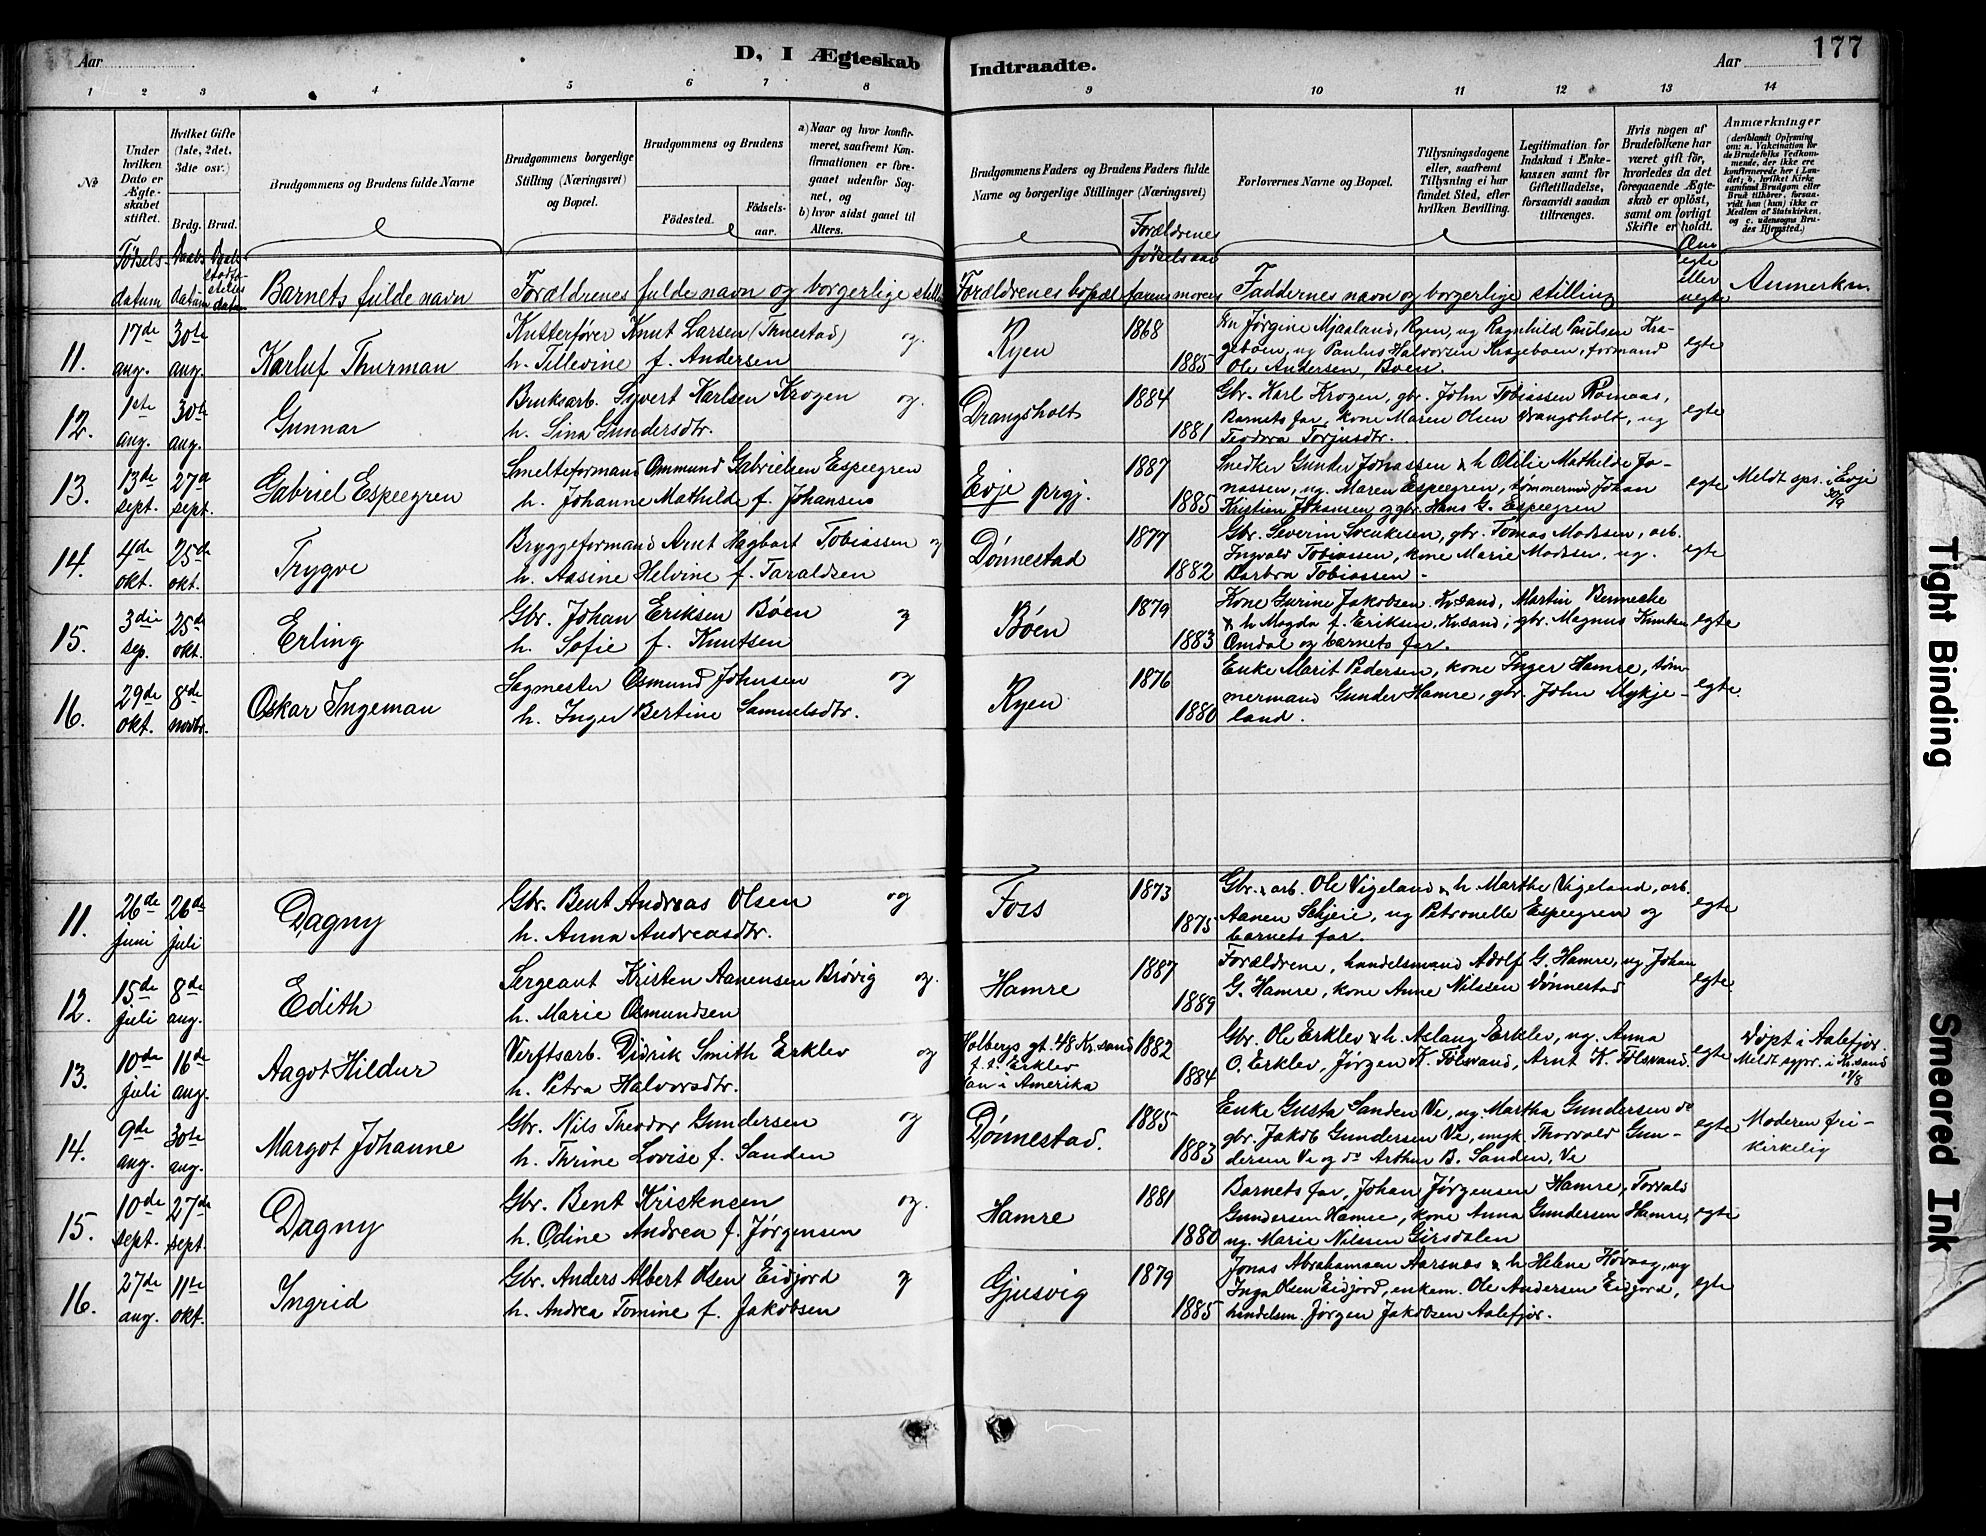 Aar
D, I Ægteskab
Indtraadte.
Aar
177
1 2 3 4 5 6 7 8 9 10 11 12 13 14
No
Under hvilken Dato er Ægteskabet stiftet.
Hvilket Gifte (1ste, 2det, 3die osv.)
Brdg. Brud.
Brudgommens og Brudens fulde Navne
Brudgommens borgerlige Stilling (Næringsvei) og Bopæl.
Brudgommens og Brudens
Födested. Födselsaar.
a) Naar og hvor konfirmeret, saafremt Konfirmationen er foregaaet udenfor Sognet, og
b) hvor sidst gaaet til Alters.
Brudgommens Faders og Brudens Faders fulde Navne og borgerlige Stillinger (Næringsvei)
Forlovernes Navne og Bopæl.
Tillysningsdagene eller, saafremt Tillysning ei har fundet Sted, efter hvilken Bevilling.
Legitimation for Indskud i Enkekassen samt for Giftetilladelse, forsaavidt saadan tiltrænges.
Hvis nogen af Brudefolkene har været gift för, hvorledes da det foregaaende Ægteskab er oplöst, samt om lovligt Skifte er holdt.
Anmærkninger
(deriblandt Oplysning om: a. Vakcination for de Brudefolks Vedkommende, der ikke ere konfirmerede her i Landet; b. hvilket Kirkesamfund Brudgom eller Brud tilhörer, forsaavidt han (hun) ikke er Medlem af Statskirken, og c. udensogns Brudes Hjemsted.)
Fødsels-datum
Daabs-datum
Barnets fulde navn
Forældrenes fulde navn og borgerlige still.
Forældrenes bopæl
Forældrenes fødselsaar
farens morens
Faddernes navn og borgerlige stilling
Om egte eller uegte
Anmerkn.
11. 17de aug. 30te aug. Karluf Thurman
Kutterfører Knut Larsen (Thnestad) og
h. Tillevine f. Andersen
Ryen 1868 1885
Gn Jørgine Mjaaland, Ryen, ug Ragnhild Paulsen Krageboen, ug Paulus Halvorsen Krageboen, formand
Ole Andersen, Boen.
egte
12. 1ste aug. 30te aug. Gunnar
Bruksarb. Syvert Karlsen Krogen og.
h. Sina Gundersdtr.
Drangsholt 1884 1881
Gbr. Karl Krogen, gbr. John Tobiassen Romaas,
Barnets far, kone Maren Olsen Drangsholt, ug
Teodora Torjusdtr.
egte
13. 13de sept. 27de sept. Gabriel Espegren
Smelteformand Ommund Gabrielsen Espegren
h. Johanne Mathilde f. Johansen
Evje prgj. 1887 1885
Snedker Gunder Jonassen & h Otilie Mathilde Jonassen, ug. Maren Espegren, tømmermd Johan
Kristian Johansen og gbr. Hans G. Espegren
egte
Meldt sps. i Evje 30/9
14. 4de okt. 25de okt. Trygve
Bryggeformand Arnt Hagbart Tobiassen og
h. Aasine Helvine f. Taraldsen
Dønnestad 1877 1882
Gbr. Severin Svenksen, gbr. Tomas Madsen, arb.
Ingvald Tobiassen, kone Marie Madsen, ug.
Barbra Tobiassen.
egte
15. 3die sep. 25de okt. Erling
Gbr. Johan Eriksen Bøen og
h. Sofie f. Knutsen
Bøen 1879 1883
Kone Gurine Jakobsen Kr.sand, Martin Benneche
& h Magda f. Eriksen, Kr.sand, gbr. Magnus
Omdal og barnets far.
egte
16. 29de okt. 8de novbr. Oskar Ingeman
Sagmester Osmund Johnsen og
h. Inger Bertine Samuelsdtr.
Ryen 1876 1880
Enke Marit Pedersen, kone Inger Hamre, tømmermand Gunder Hamre, gbr. John Mykjeland.
egte
11. 26de juni 26de juli Dagny
Gbr. Bent Andreas Olsen og
h. Anna Andreasdtr.
Foss 1873 1875
Gbr. & arb. Ole Vigeland & h Marthe Vigeland, arb.
Aanen Skjeie, ug Petronelle Espegren og
barnets far.
egte
12. 15de juli 8de aug. Edith
Sergeant Kristen Aanensen Brøvig og.
h. Marie Osmundsen
Hamre 1887 1889
Forældrene, handelsmand Adolf G. Hamre, ug Johan
G. Hamre, kone Anne Nilssen Dønnestad
egte
13. 10de juli 16de aug. Aagot Hildur
Verftsarb. Didrik Smith Erklev og
h. Petra Halvorsdtr.
Holbergs gt. 48 Kr.sand
f. t. Erklev
han i Amerika
1882 1884
Gbr. Ole Erklev & h. Aslaug Erklev, ug. Anna
O. Erklev, Jørgen K. Tolsvand, Arnt K. Tolsvand.
egte
Døpt i Aalefjær.
Meldt sypr. i Kr.sand 17/8
14. 9de aug. 30te aug. Margot Johanne
Gbr. Nils Theodor Gundersen og
h. Thrine Lovise f. Sanden
Dønnestad. 1885 1883
Enke Gusta Sanden Ve, ug. Martha Gundersen do
gbr. Jakob Gundersen Ve, ungk. Thorvald Gundersen Ve og do Arthur B. Sanden, Ve
egte
Moderen frikirkelig
15. 10de sept. 27de sept. Dagny
Gbr. Bent Kristensen og.
h. Odine Andrea f. Jørgensen
Hamre 1881 1880
Barnets far, Johan Jørgensen Hamre, Torvald
Gundersen Hamre, kone Anna Gundersen Hamre,
ug. Marie Nilssen Girsdalen
egte
16. 27de aug. 11te okt. Ingrid
Gbr. Anders Albert Olsen Eidjord og
h. Andrea Tomine f. Jakobsen
Gjusvig 1879 1885
Jonas Abrahamsen Aarsnes & h Helene Høvaag, ug
Inga Olsen Eidjord, enkem. Ole Andersen Eidjord,
handelsm. Jørgen Jakobsen Aalefjær.
egte
Tight Binding
Smeared Ink